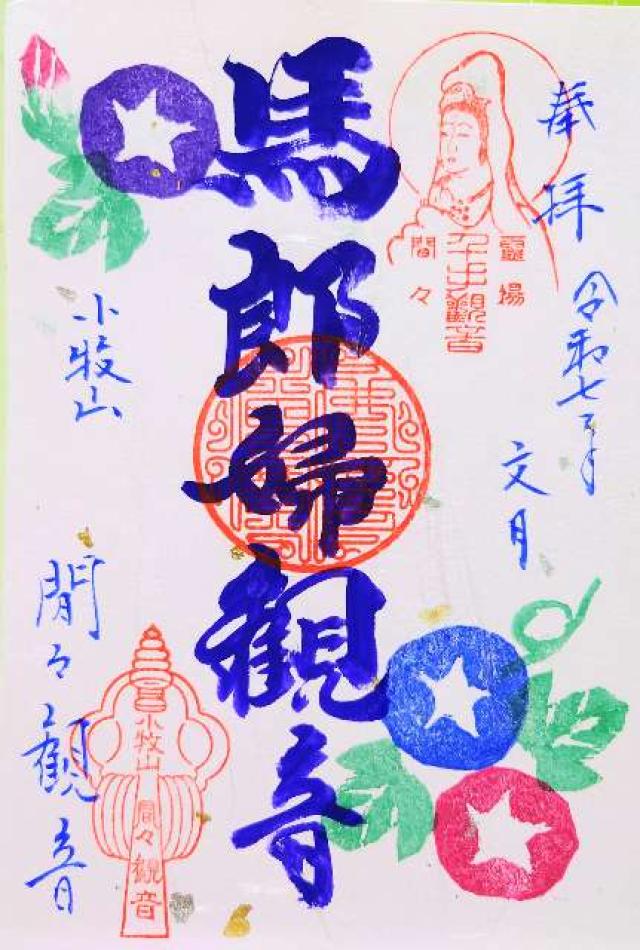 奉拝
令和七年
文月
霊場
千手觀音
間々
馬郎婦観音
小牧山
間々観音
小牧山
間々観音